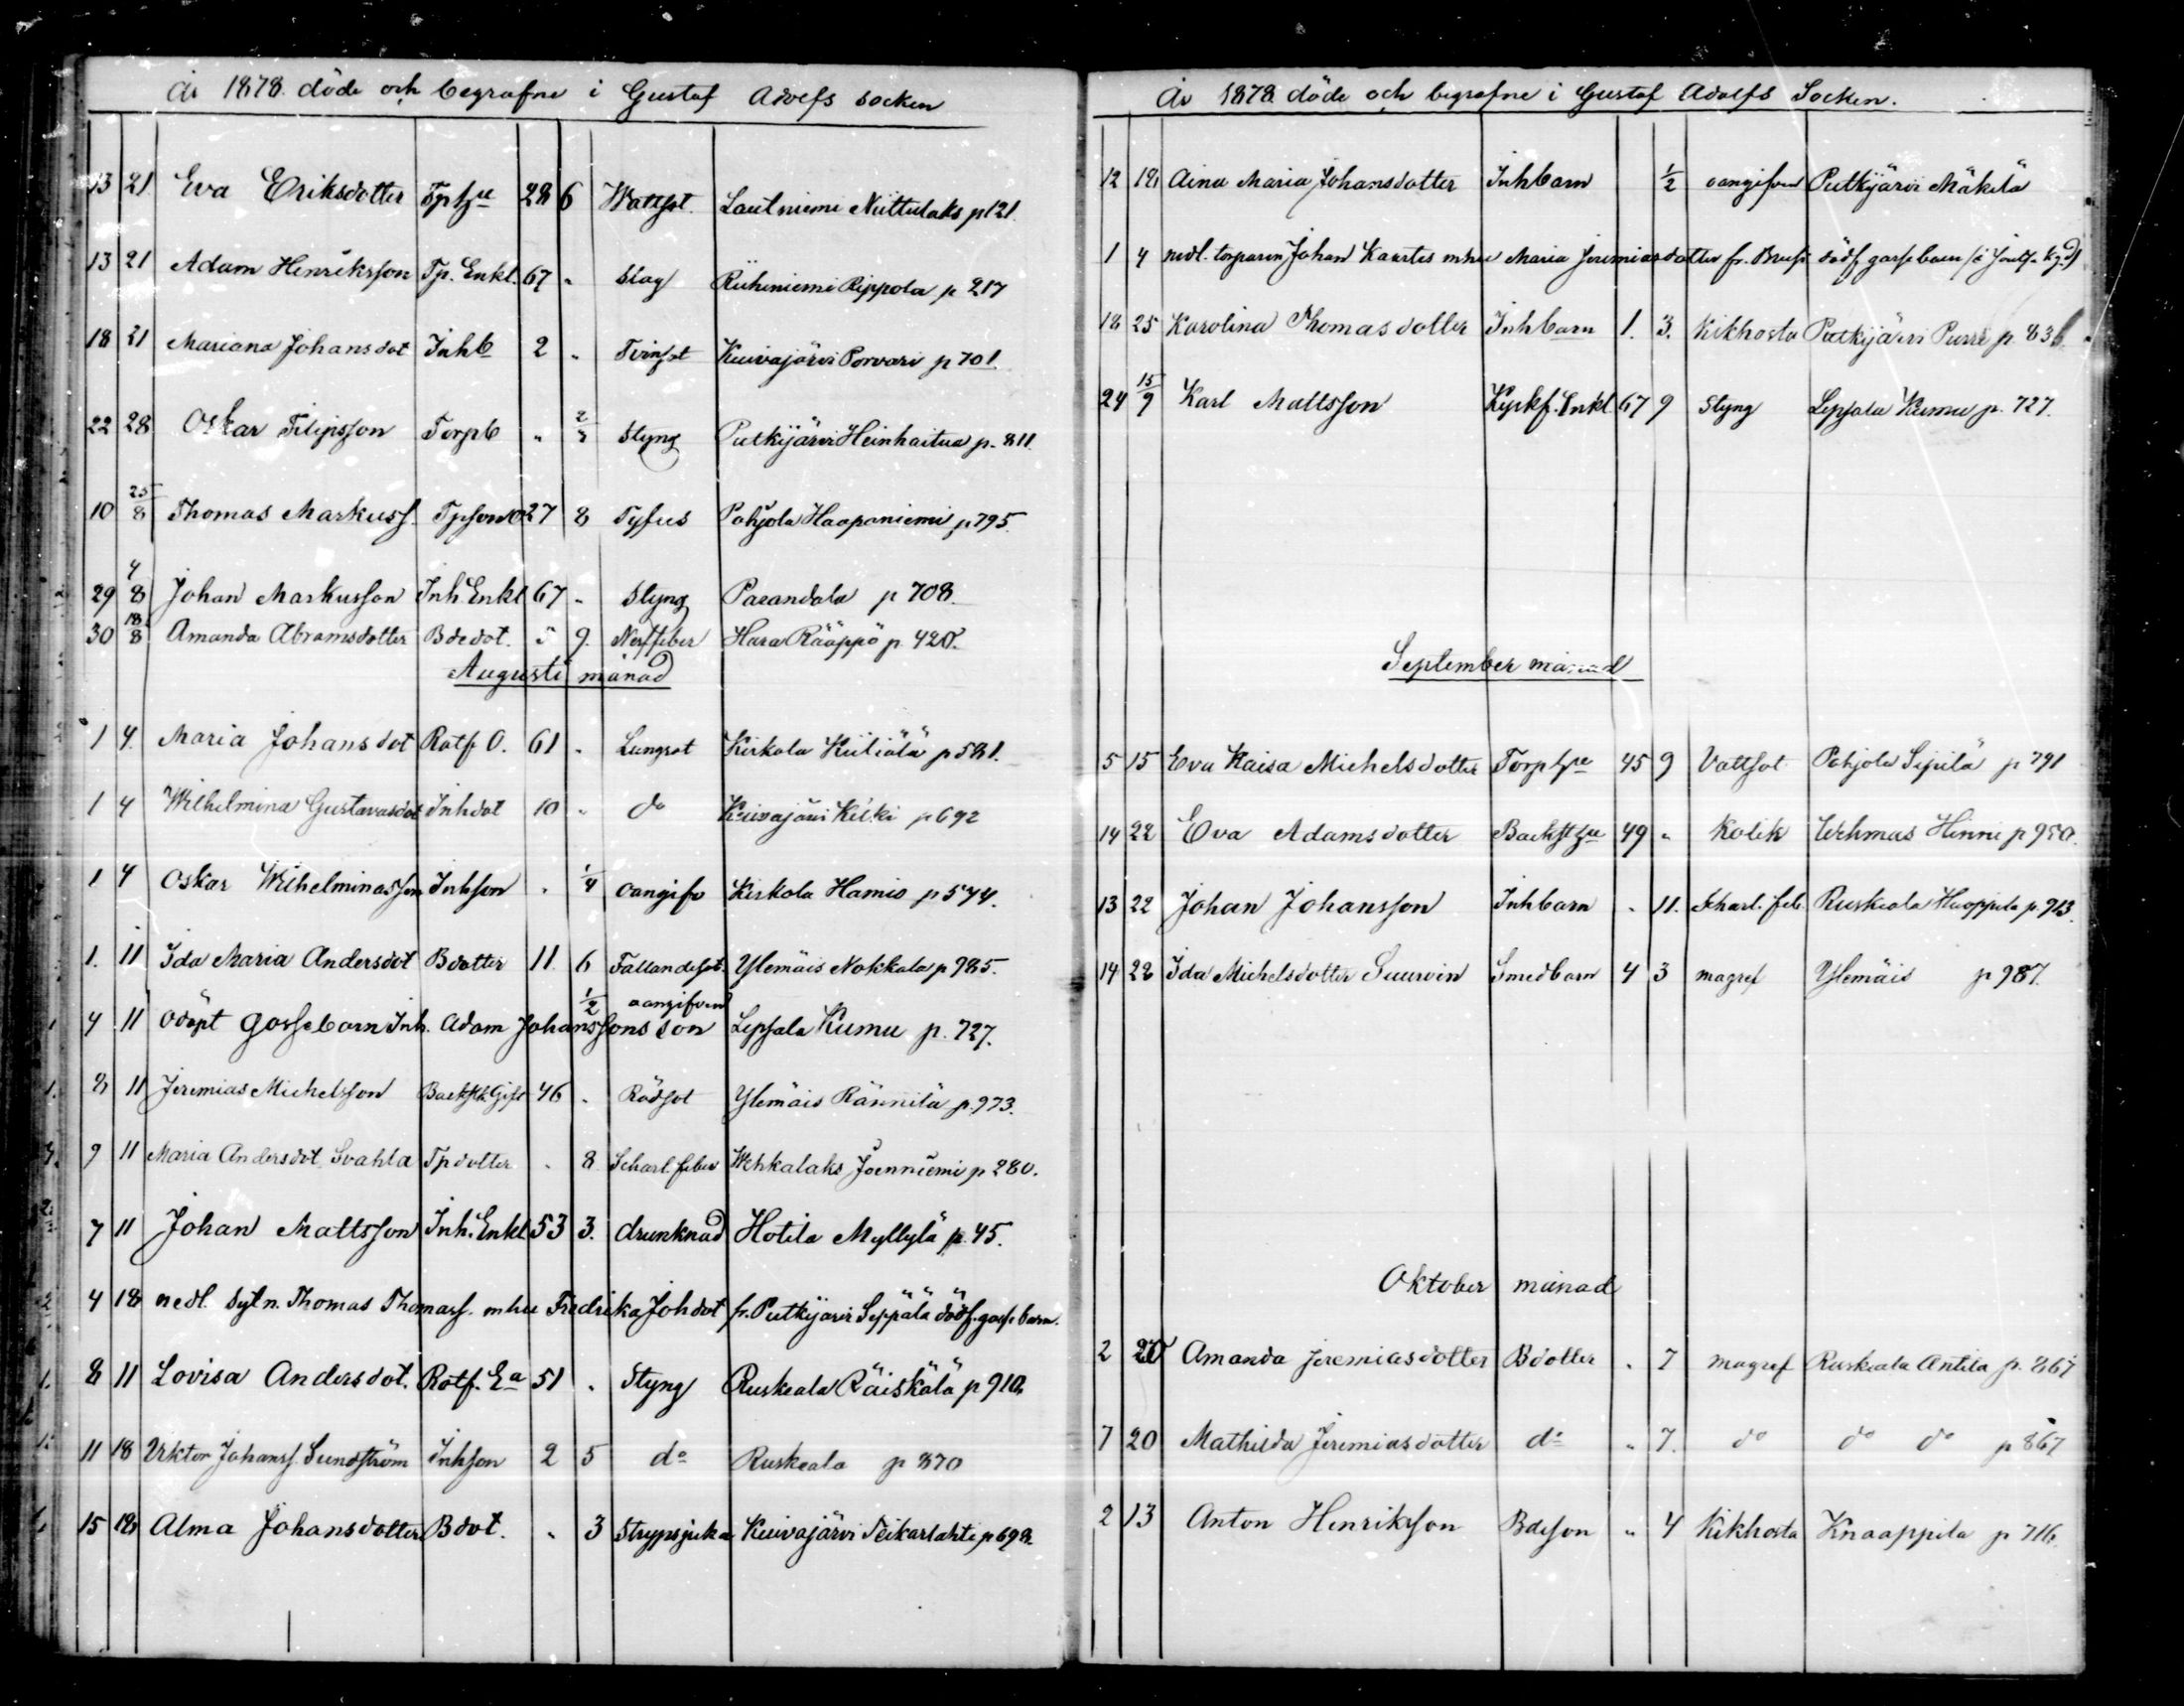 År 1878. döde och begrafne i Gustaf Adolfs socken
13 21 Eva Eriksdotter 28 6 Wattsot. Lautniemi Niittulaks p 121.
13 21 Adam Henriksson Tp. Enkl. 67 " Slag Riihiniemi Rippola p 217
18 21 Mariana Johansdot Inhb 2 " Tvinsot Kuivajärvi Porvari p 701.
22 28 Oskar Filipsson Torpb " Styng Putkijärvi Heinhaitua p. 811.
10 25/8 Thomas Markuss. Tpson O 27 8 Tyfus Pohjola Haapaniemi p 795.
29 4/8 Johan Markusson Inh. Enkl 67 " Styng Parandala p 708.
30 18/8 Amanda Abramsdotter Bdedot. " 9. Nerffeber Hara Rääppö p 420.
Augusti månad
1 4. Maria Johansdot Rotf O. 61 " Lungsot Kirkola Kiiliälä p 581.
1 4 Wilhelmina Gustavasdot Inhdot 10 " do Kuivajärvi Kilki p 692
1 4 Oskar Wilhelminasson Inhson " 1/4 oangifv Kirkola Hamio p 544.
1. 11 Ida Maria Andersdot Bdotter 11. 6 Fallandesot. Ylemäis Nokkala p 985.
4 11 Odöpt gossebarn Inh. Adam Johanssons son 1/2 oangifven Lepsala Kumu p. 727.
8 11 Jeremias Michelsson Backst. Gift 46 " Rödsot Ylemäis Rännilä p. 973.
9 11 Maria Andersdot. Svahla Tpdotter " 8 Scharl. feber Wehkalaks Joenniemi p 280.
7 11 Johan Mattsson Inh. Enkl 53 3. drunknad Hotila Myllylä p. 45.
4 18 nedl. Sytn. Thomas Thomass. mhu Fredrika Johdot fr. Putkijärvi Seppälä dödf. gosse barn.
8 11 Lovisa Andersdot. Rotf. Ea 51 " Styng Ruskeala Räiskälä p 910.
11 18 Viktor Johanss. Sundström Inhson 2 5 do Ruskeala p 870
15 18 Alma Johansdotter Bdot. " 3 Strypsjuka Kuivajärvi Teikarlahti p 698.
År 1878. döde och begrafne i Gustaf Adolfs Socken.
12 18 Aina Maria Johansdotter Inhbarn 1/2 oangifven Putkijärvi Mäkilä
1 4 nedl. torparen Johan Kaurtes mhu Maria Jeremiasdotter fr. dödf gossebarn
18 25 Karolina Thomasdotter Inhbarn 1. 3. Kikhosta Putkijärvi Purri p. 836.
24 15/9 Karl Mattsson Enkl. 67 9 Styng Lepsala Kumu p. 727.
September månad
5 15 Eva Kaisa Michelsdotter 45 9 Vattsot Pohjola Sipilä p 791
14 22 Eva Adamsdotter 49 " Kolik Wehmas Hinni p 950.
13 22 Johan Johansson Inhbarn " 11. Scharl. feb. Ruskeala Huoppila p. 913.
14 22 Ida Michelsdotter Suurvin Smedbarn 4 3 magref Ylemäis p 987.
Oktober månad
2 20 Amanda Jeremiasdotter Bdotter " 7 magref Ruskeala Antila p. 867
7 20 Mathilda Jeremiasdotter do " 7. do do do p 867
2 13 Anton Henriksson Bdeson " 4 Kikhosta Knaappila p 716.